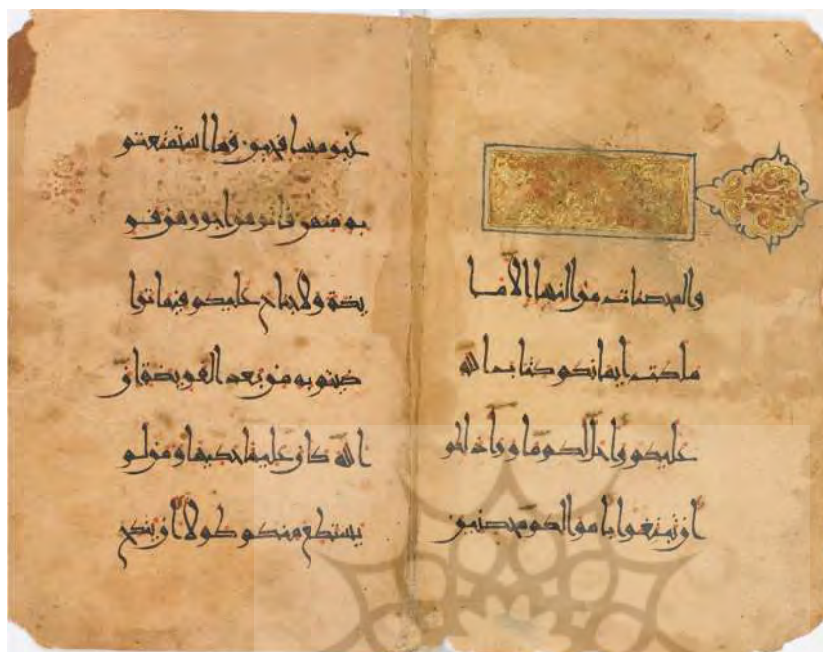 والمحصنات من النسا الا ما
ملكت أيمانكم كتاب الله
عليكم وأحل لكم ما ورآ ذلكم
أن تبتغوا بأموالكم محصنين
غير مسافحين فما استمتعتم
به منهن فاتوهن اجورهن فر
يضة ولا جناح عليكم فيما ترا
ضيتم به من بعد الفريضة ان
الله كان عليما حكيما ومن لم
يستطع منكم طولا أن ينكح